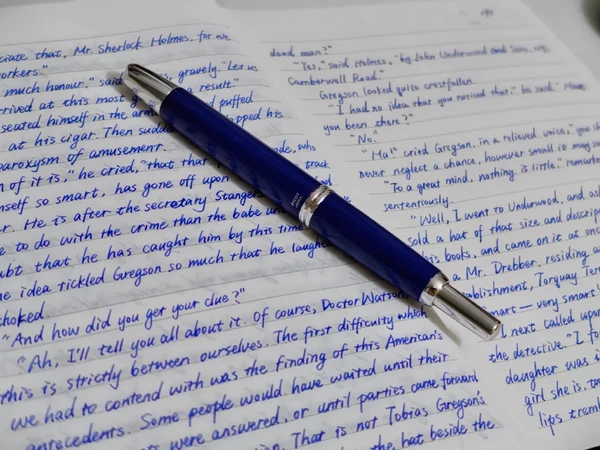 ciate that, Mr. Sherlock Holmes, for we
workers."
much honour." said gravely. "Let us
rrived at this most a result"
seated himself in the arm puffed
at his cigar. Then sudde apped his
paroxysm of amusement.
n of it is," he cried, "that that ade, who
mself so smart, has gone off upon track
r. He is after the secretary Stange
e to do with the crime than the babe un
ubt that he has caught him by this time
he idea tickled Gregson so much that he laughe
choked.
"And how did you get your clue?"
"Ah, I'll tell you all about it. Of course, Doctor Watson,
this is strictly between ourselves. The first difficulty which
we had to contend with was the finding of this American's
antecedents. Some people would have waited until their
ts were answered, or until parties came forward
ion. That is not Tobias Gregson's
the hat beside the
dead man?"
"Yes," said Holmes, "by John Underwood and Sons, 129,
Camberwell Road."
Gregson looked quite crestfallen.
"I had no idea that you noticed that," he said. "Have
you been there?"
"No."
"Ha!" cried Gregson, in a relieved voice, "you sh
never neglect a chance, however small it may se
"To a great mind, nothing is little," remark
sententiously.
"Well, I went to Underwood, and as
sold a hat of that size and descrip
his books, and came on it at onc
a Mr. Drebber, residing a
ablishment, Torquay Ter
mart — very smart!
I next called upo
the detective. "I fo
daughter was i
girl she is, too
lips tremb